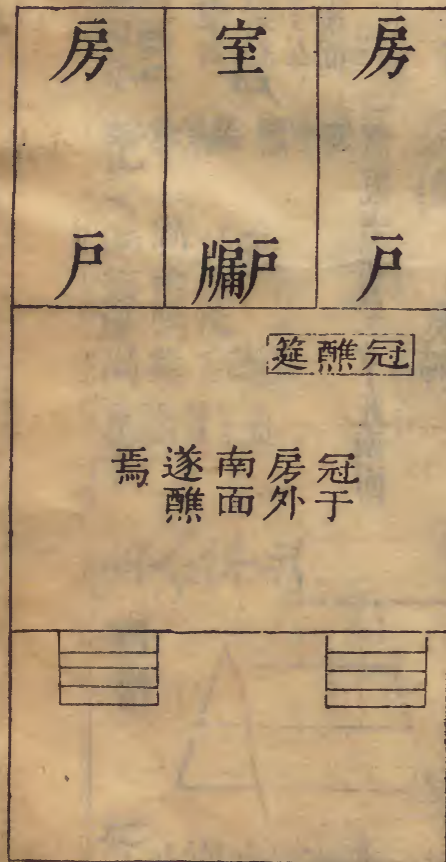 房
室
房
戶
戶牖
戶
冠醮筵
冠于
房外
南面
遂醮
焉